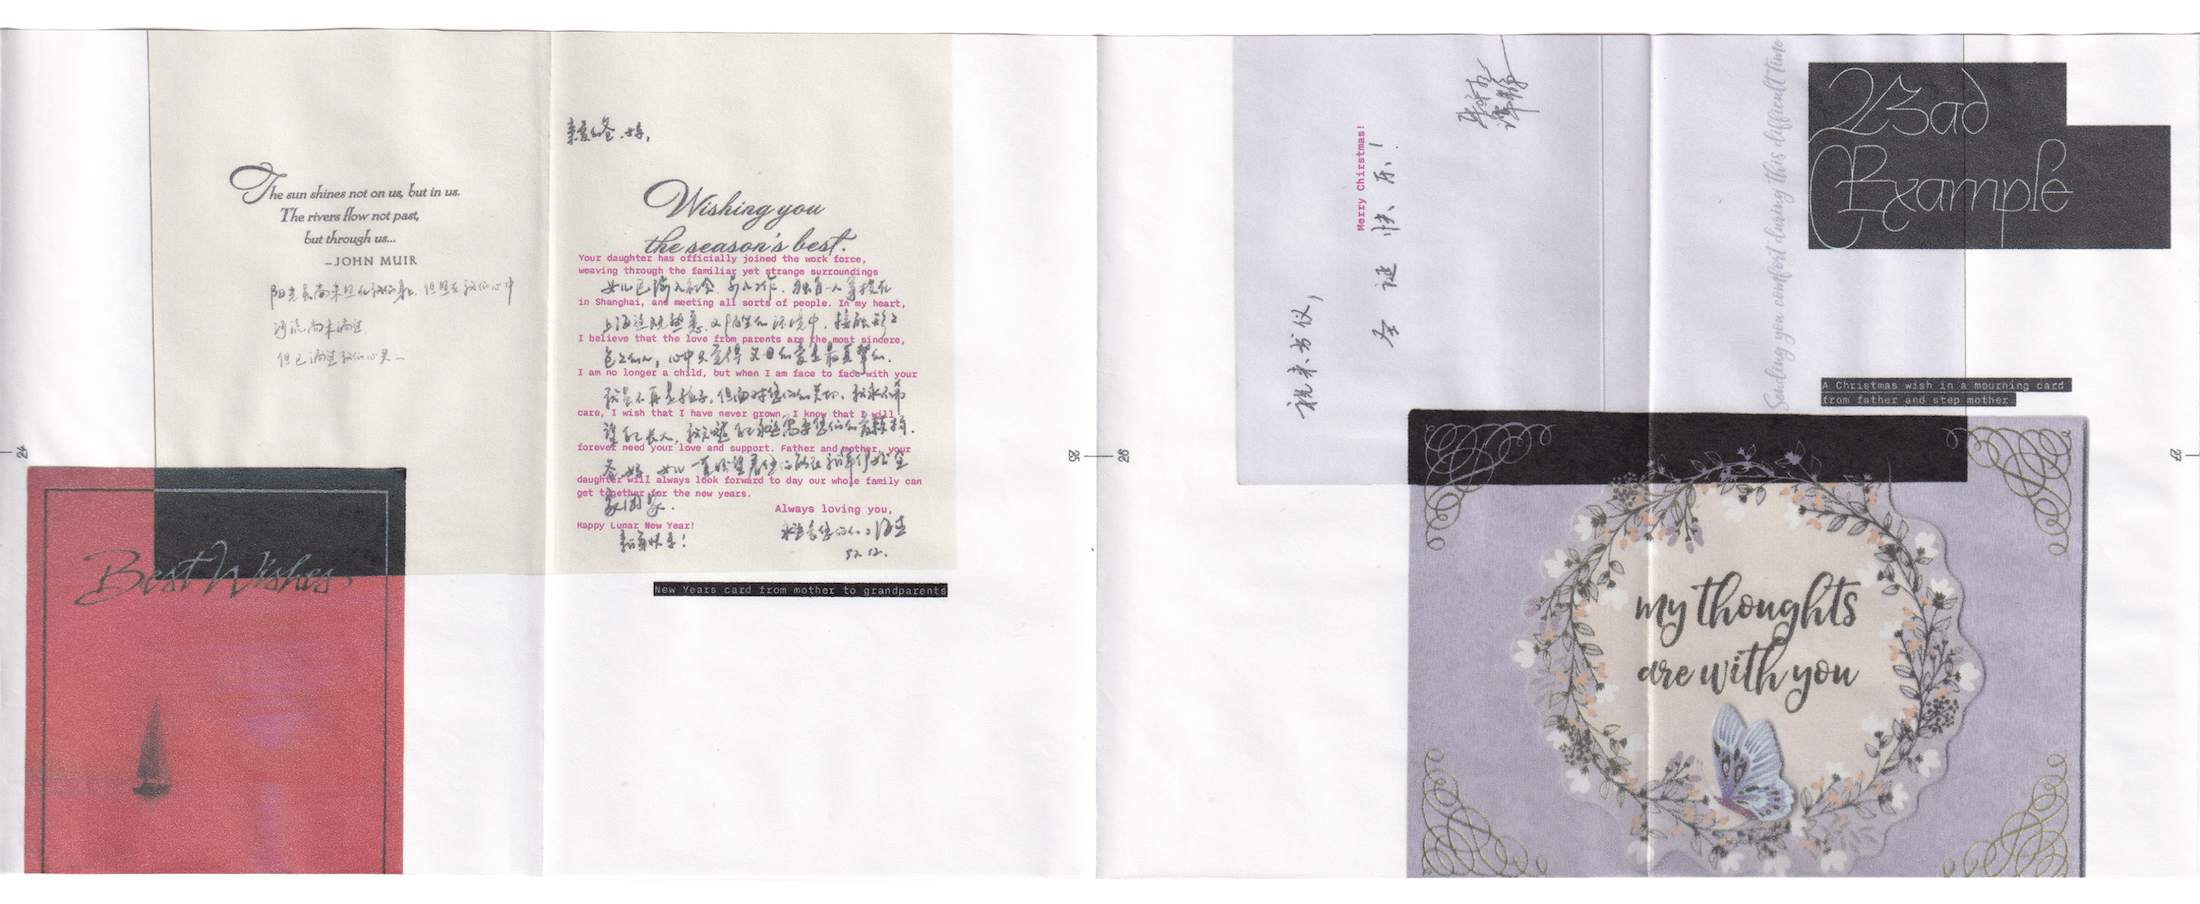 The sun shines not on us, but in us.
The rivers flow not past,
but through us...
–JOHN MUIR
阳光尚未照在我们身上，但照在我们心中
河流尚未淌过
但已淌过我们心里
24
Best Wishes
亲爱的爸、妈，
Wishing you
the season's best.
Your daughter has officially joined the work force,
weaving through the familiar yet strange surroundings
女儿已踏入社会，
in Shanghai, and meeting all sorts of people. In my heart,
上海这既熟悉又陌生的环境中，接触形形
I believe that the love from parents are the most sincere,
色色的人，心中只觉得父母的爱是最真挚的。
I am no longer a child, but when I am face to face with your
我虽不再是孩子，但面对您们的关切，
care, I wish that I have never grown, I know that I will
forever need your love and support. Father and mother, your
爸、妈，女儿一直
daughter will always look forward to day our whole family can
get together for the new years.
Always loving you,
Happy Lunar New Year!
新年快乐！
New Years card from mother to grandparents
25
26
祝来书仪，
Merry Chirstmas!
圣诞快乐！
Sending you comfort during this difficult time
Bad
Example
A Christmas wish in a mourning card
from father and step mother
27
my thoughts
are with you